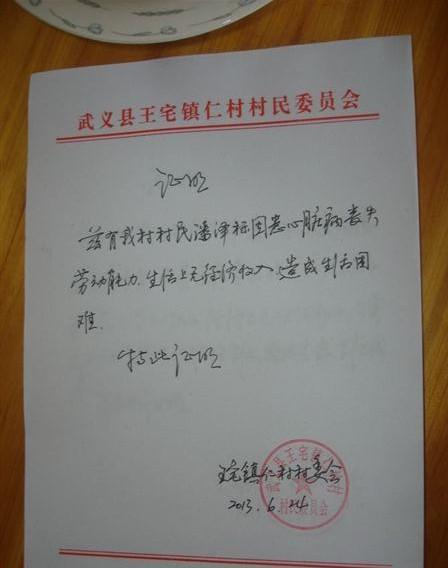 武义县王宅镇仁村村民委员会
证明
兹有我村村民潘泽标因患心脏病丧失
劳动能力.生活上无经济收入.造成生活困
难.
特此证明
王宅镇仁村村委会
2013.6.24
武义县王宅镇仁村
村民委员会